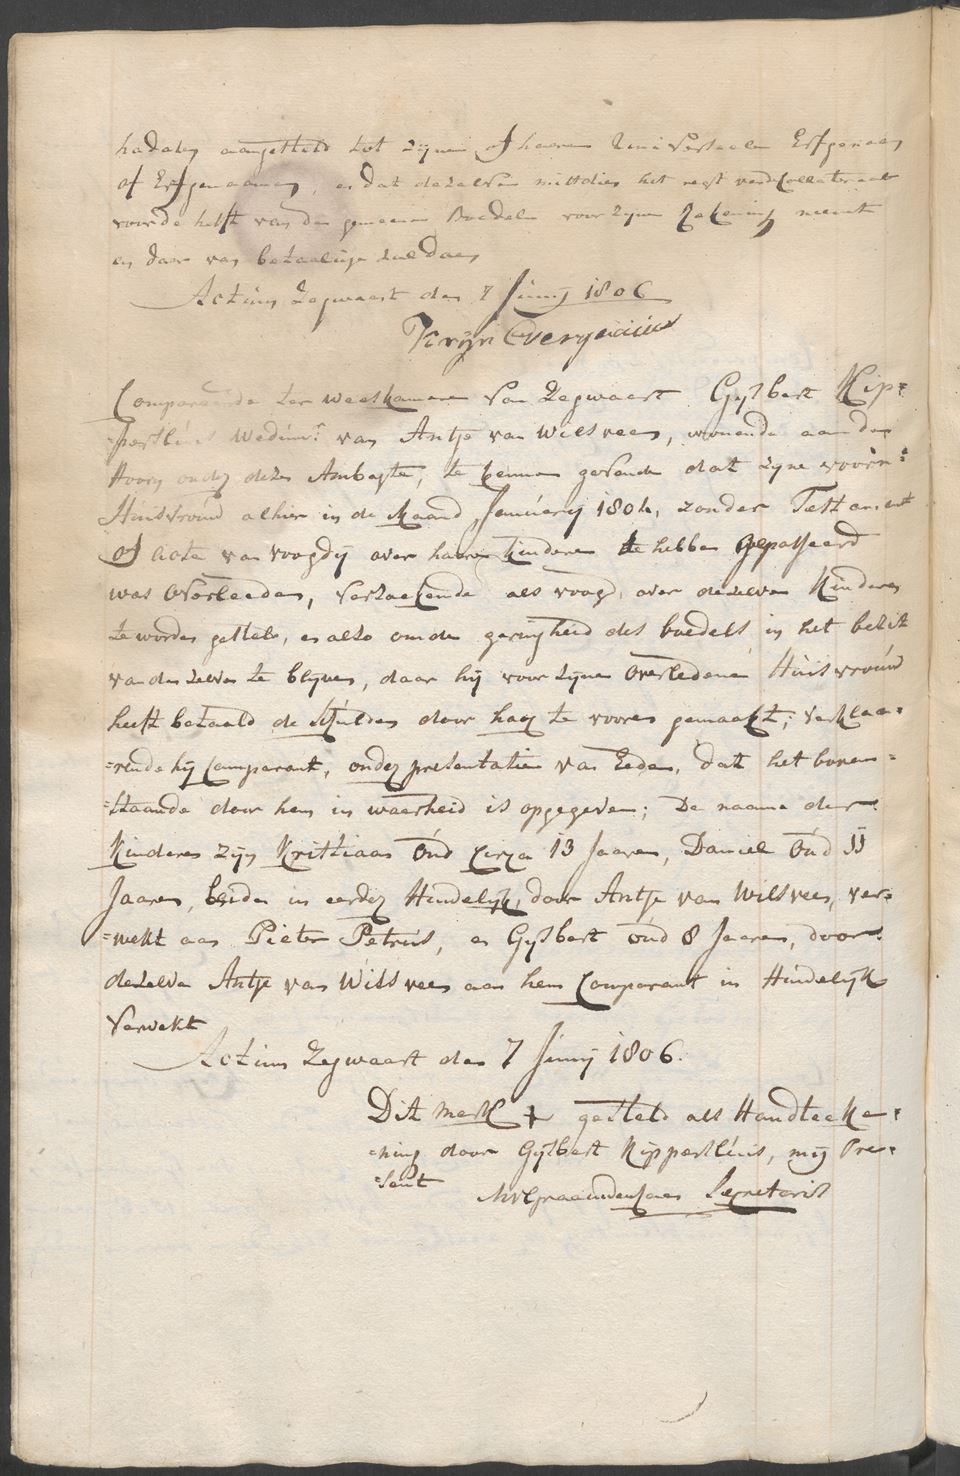 hadden aangesteld tot zijnen of haaren Universeelen Erfgenaam
of Erfgenaamen, en dat dezelven mitsdien het regt van de Collateraal
voor de helft van den gemeenen Boedel voor zijne Rekening neemt
en daar van betaalinge zal doen
Actum Zegwaart den 7 Junij 1806
Krijn
Compareerde ter Weeskamere van Zegwaart Gijsbert Kip=
=pesluis Weduwr. van Antje van Wilsveen, wonende aan den
Hoorn onder dezen Ambagte, te kennen gevende dat zijne voorn:
Huisvrouw alhier in de Maand Januarij 1804, zonder Testament
of Acte van voogdij over haare kinderen te hebben gepasseerd
was Overleeden, verzoekende als voogd over dezelve Kinderen
te worden gesteld, en alzo om de geringheid des boedels in het bezit
van denzelven te blijven, daar hij voor zijne Overledene Huisvrouw
heeft betaald de schulden door haar te vooren gemaakt; verklaa=
=rende hij Comparant, onder presentatie van Eede, dat het boven=
=staande door hem in waerheid is opgegeven; De naame der
Kinderen zijn Kristiaan Oud circa 13 Jaaren, Daniel Oud 11
Jaaren, beiden in eerder Huwelijk, door Antje van Wilsveen, ver=
=wekt aan Pieter Petrus, en Gijsbert oud 8 Jaaren, door
dezelve Antje van Wilsveen aan hem Comparant in Huwelijk
Verwekt
Actum Zegwaart den 7 Junij 1806.
Dit merk + gesteld als Handteeke=
=ning door Gijsbert Kippesluis, mij Pre=
=sent
Secretaris